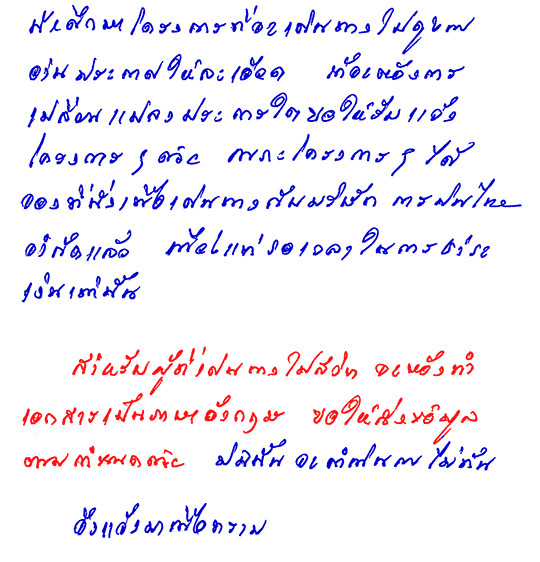 นักศึกษาโครงการที่จะเดินทางไปดูงาน
อ่านประกาศให้ละเอียด หากต้องการ
เปลี่ยนแปลงประการใด ขอให้รีบแจ้ง
โครงการ ๆ ด้วย เพราะโครงการ ๆ ได้
จองที่นั่งเพื่อเดินทางกับบริษัท การบินไทย
จำกัดแล้ว เพียงแต่รอเวลาในการชำระ
เงินเท่านั้น
สำหรับผู้ที่เดินทางไปสวีเดน จะต้องทำ
เอกสารเป็นภาษาอังกฤษ ขอให้ส่งข้อมูล
ตามกำหนดด้วย มิฉะนั้น จะดำเนินการไม่ทัน
จึงแจ้งมาเพื่อทราบ